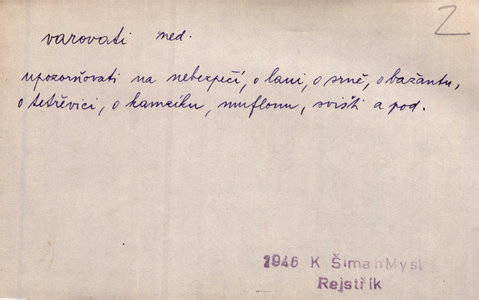 varovati ned.
2
upozorňovati na nebezpečí, o lani, o srně, o bažantu,
o tetřevici, o kamzíku, muflonu, svišti a pod.
1946 K ŠimanMysl
Rejstřík